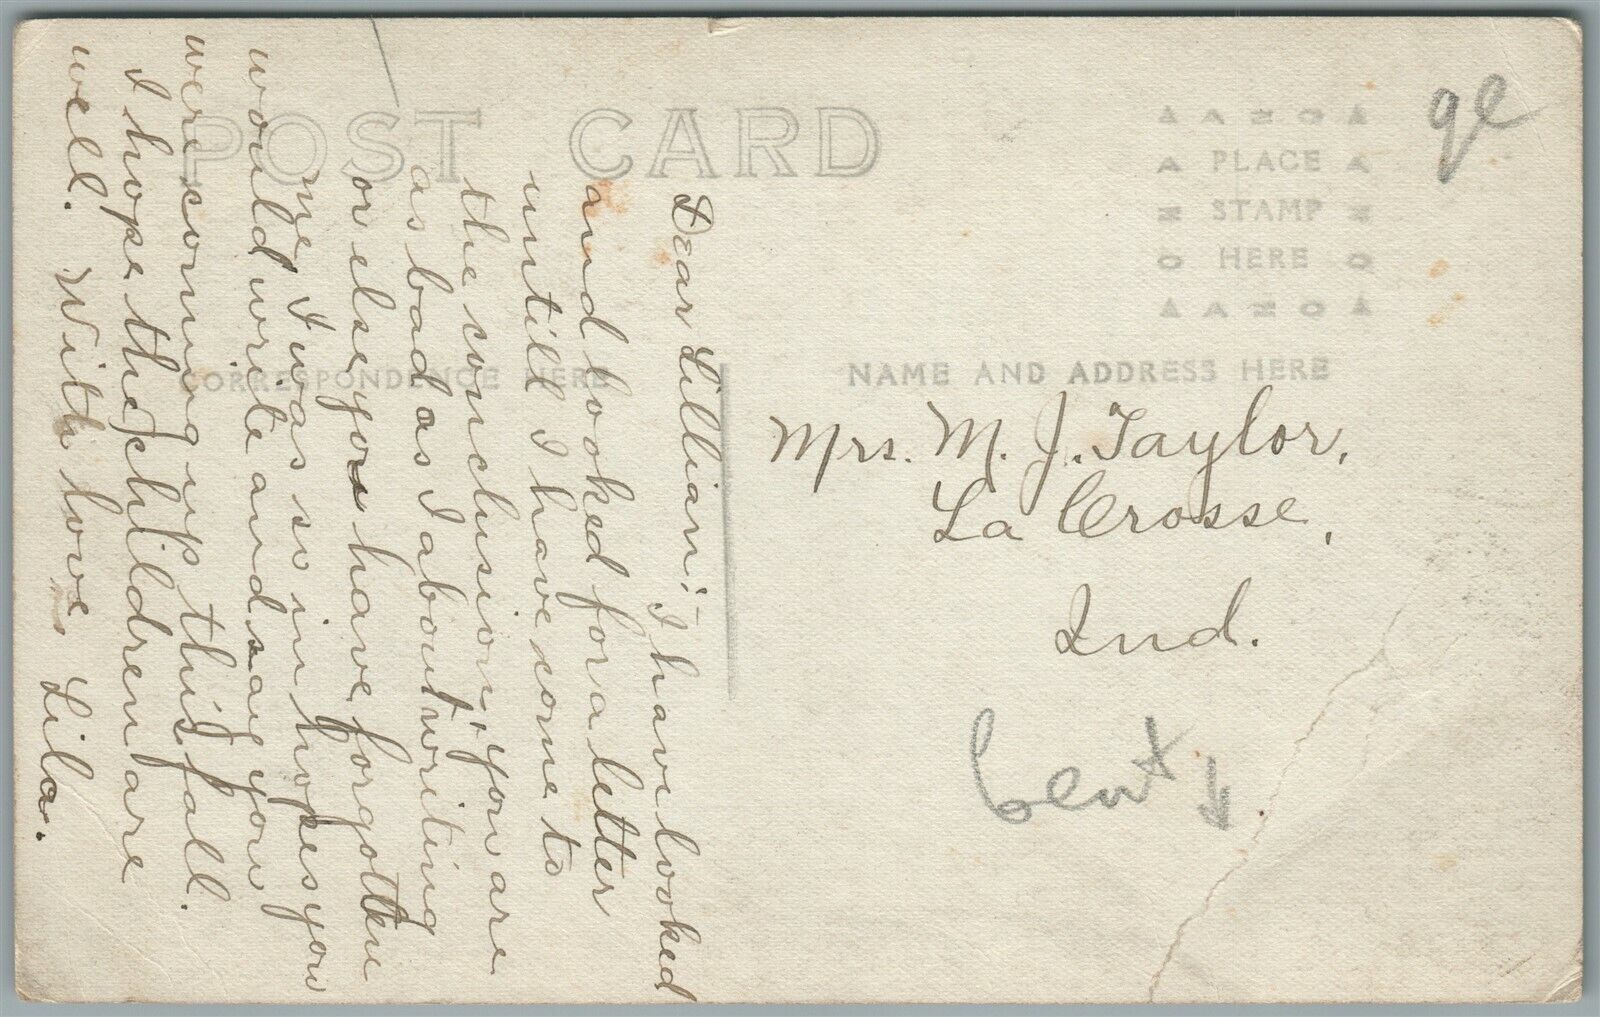 POST CARD
CORRESPONDENCE HERE
NAME AND ADDRESS HERE
PLACE
STAMP
HERE
Dear Lillian; I have looked
and looked for a letter
untill I have come to
the conclusion, you are
as bad as I about writing
or else you have forgotten
me, I was so in hopes you
would write and say you
were coming up this fall.
I hope the children are
well. With love, Lila.
Mrs. M. J. Taylor,
La Crosse,
Ind.
bent ↓